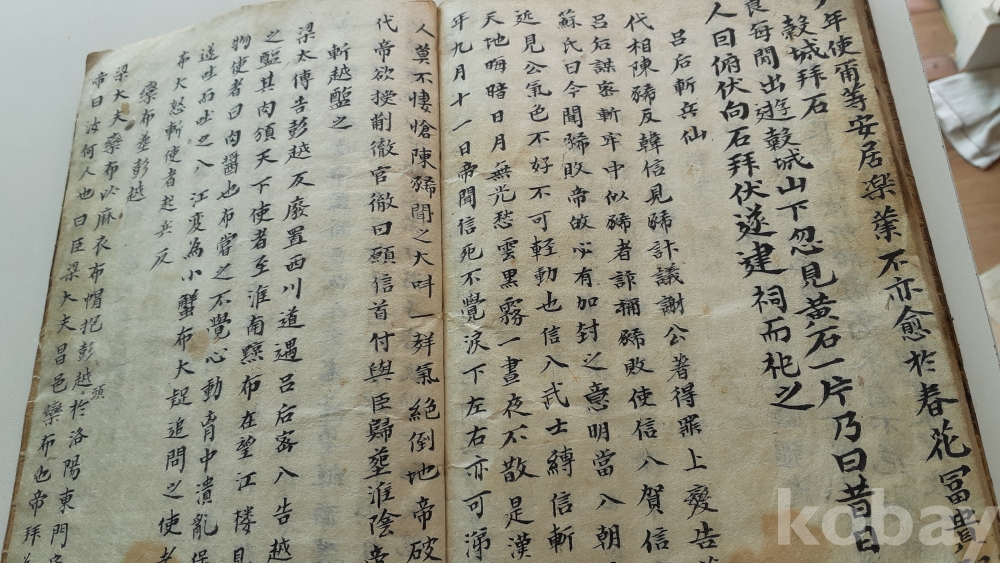 年使蕭等安居樂業不亦愈於春花富貴
穀城拜石
良每閒出遊穀城山下忽見黃石一片乃曰昔日
人曰俯伏向石拜伏遂建祠而祀之
呂后斬兵仙
代相陳豨反韓信見豨計議謝公著得罪上變告
呂后謀密斬牢中似豨者詐稱豨敗使信入賀信
蘇氏曰今聞豨敗帝故必有加封之意明當入朝
近見公氣色不好不可輕動也信入武士縛信斬
天地晦暗日月無光愁雲黑霧一晝夜不散是漢
年九月十一日帝聞信死不覺淚下左右亦可涕
人莫不悽愴陳豨聞之大呌一聲氣絕倒地帝破
代帝欲授蒯徹官徹曰願信首付與臣歸塟淮陰
斬越醢之
梁太傅告彭越反廢置西川道遇呂后密入告越
之醢其肉頒天下使者至淮南黥布在望江樓見
物使者曰肉醬也布嘗之不覺心動胷中潰亂
遂吐而吐之入江変為小蟹布大起追問之使者
布大怒斬使者起兵反
欒布塟彭越
梁大夫欒布以麻衣布帽抱彭越頭於洛陽東門
帝曰汝何人也曰臣梁大夫昌邑欒布也帝拜
kobay